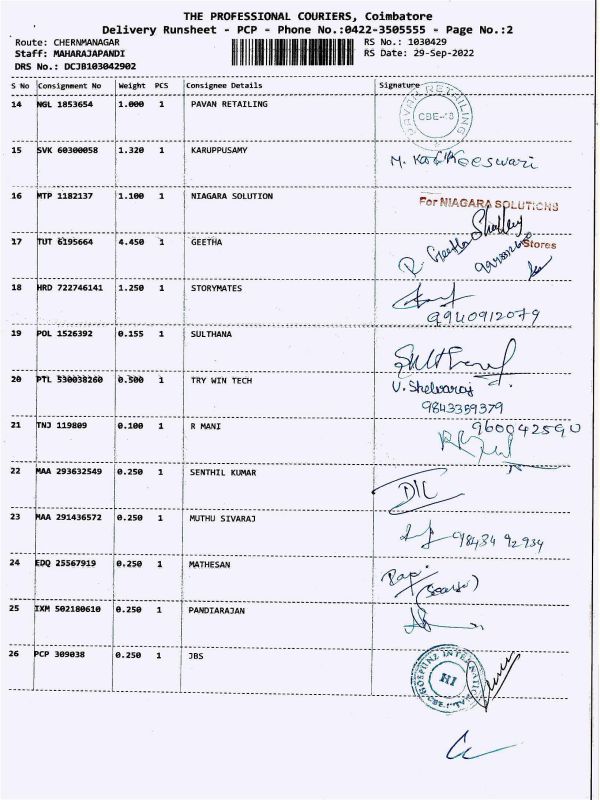 THE PROFESSIONAL COURIERS, Coimbatore
Delivery Runsheet - PCP - Phone No.:0422-3505555 - Page No.:2
Route: CHERNMANAGAR RS No.: 1030429
Staff: MAHARAJAPANDI RS Date: 29-Sep-2022
DRS No.: DCJB103042902
S No Consignment No Weight PCS Consignee Details Signature
14 NGL 1853654 1.000 1 PAVAN RETAILING
PAVAN RETAILING CBE-18
15 SVK 60300058 1.320 1 KARUPPUSAMY
16 MTP 1182137 1.100 1 NIAGARA SOLUTION For NIAGARA SOLUTIONS
17 TUT 6195664 4.450 1 GEETHA R. Geetha Stores
18 HRD 722746141 1.250 1 STORYMATES
9940912079
19 POL 1526392 0.155 1 SULTHANA
20 PTL 530038260 0.500 1 TRY WIN TECH
9843359379
21 TNJ 119809 0.100 1 R MANI 960042590
22 MAA 293632549 0.250 1 SENTHIL KUMAR
23 MAA 291436572 0.250 1 MUTHU SIVARAJ
98434 92934
24 EDQ 25567919 0.250 1 MATHESAN
25 IXM 502180610 0.250 1 PANDIARAJAN
26 PCP 309038 0.250 1 JBS
HI